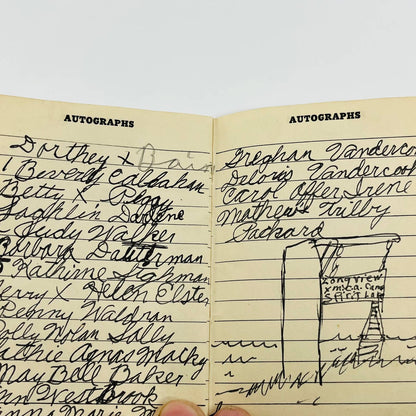 AUTOGRAPHS
Dorthey x Bain
1 Beverly Callahan
Betty x Peggy
Jacklin Darlene
Judy Walker
Barbara Dauterman
Kathrine Lehman
Jerry x Helen Elster
Penny Waldran
Dolly Nolan Sally
Cathie Agnas Macky
May Bell Baker
Ann Westbrook
Anna Marie M
AUTOGRAPHS
Greghan Vandercoo
Deloris Vandercook
Carol Offer Irene
Mathews Trilby
Packard
Longview
Y.M.C.A. Camp
Spirit Lake